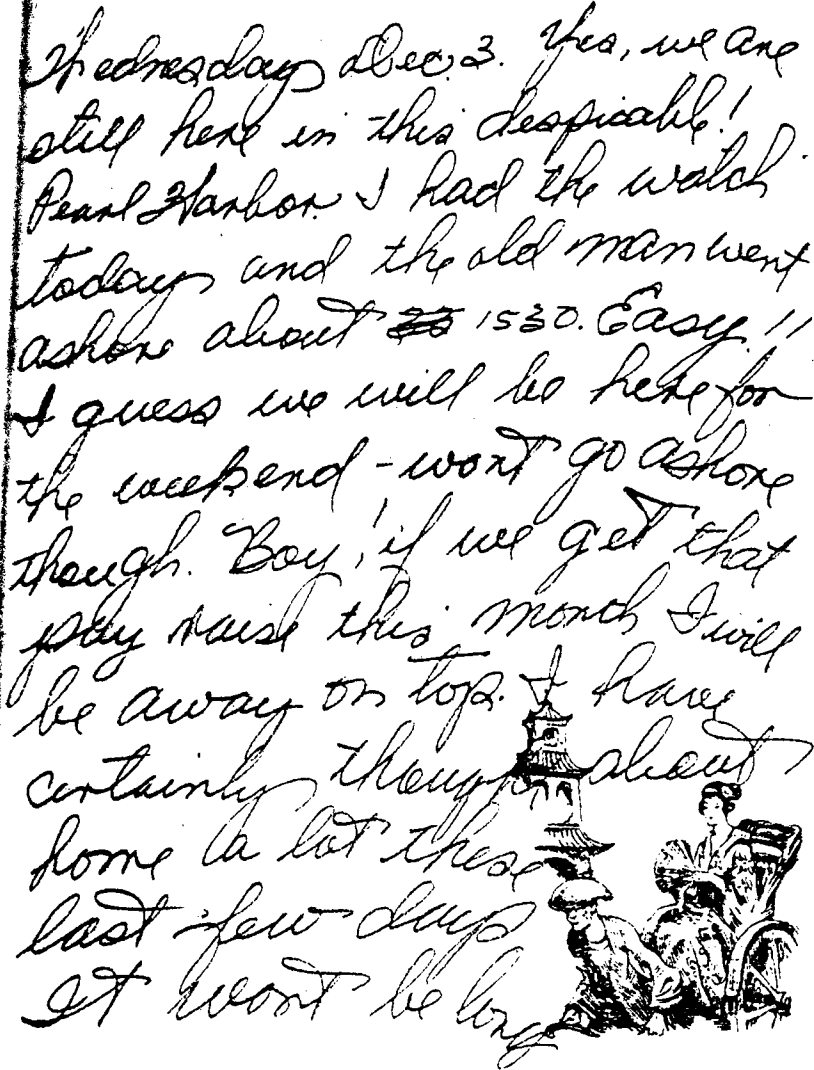 Wednesday Dec. 3. Yes, we are
still here in this despicable!
Pearl Harbor. I had the watch
today and the old man went
ashore about 1530. Easy!!
I guess we will be here for
the weekend - wont go ashore
though. Boy! if we get that
pay raise this month I will
be away on top. I have
certainly thought about
home a lot these
last few days
It wont be long